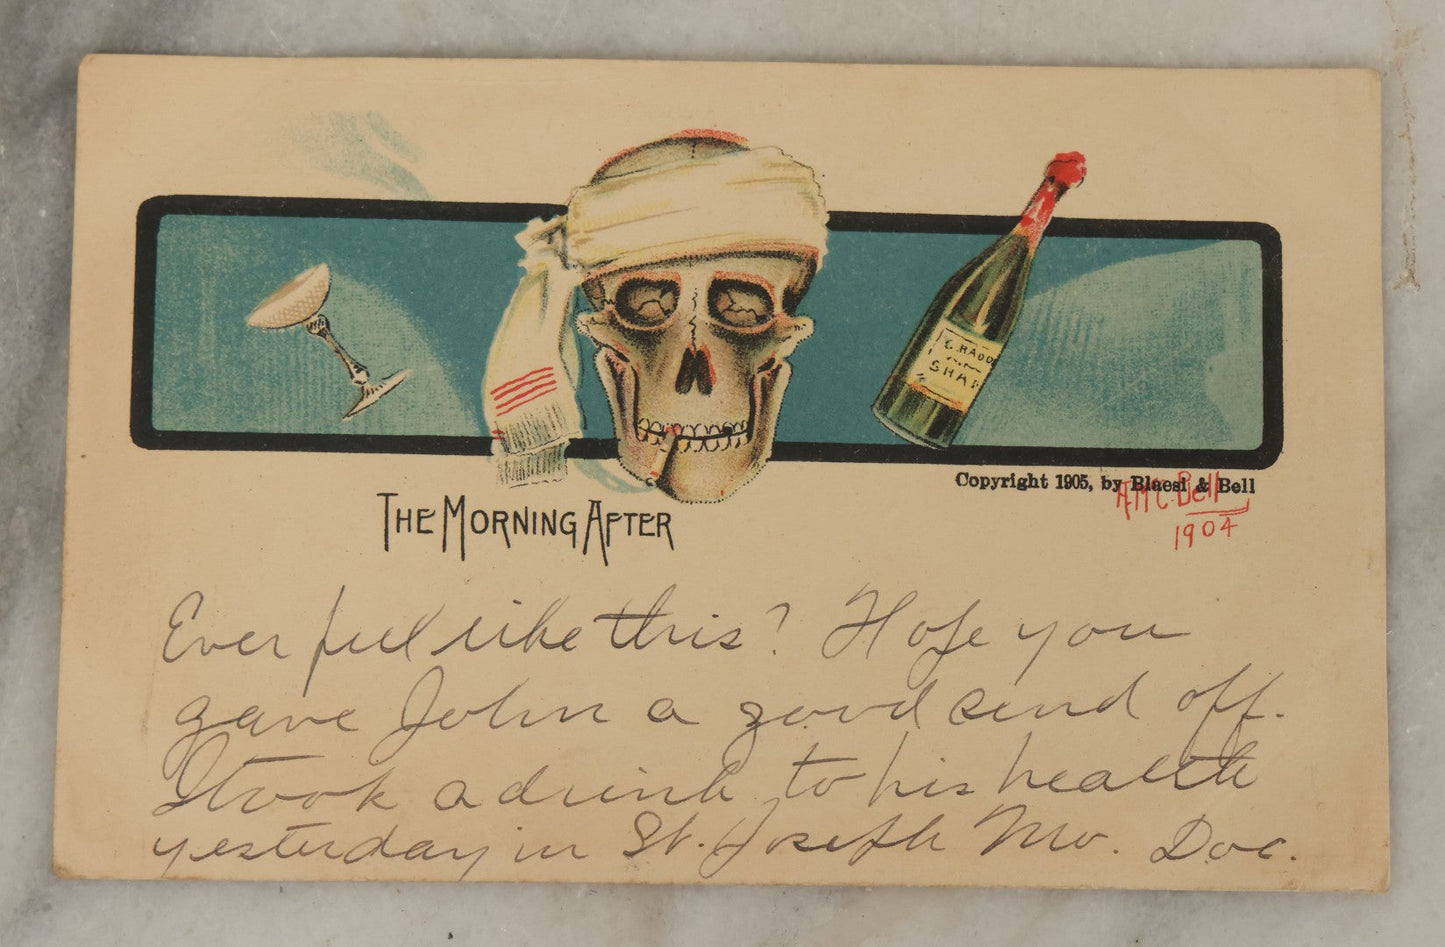 G. RADD
SHAM
Copyright 1905, by Bluesi & Bell
A Mc. Bell
1904
THE MORNING AFTER
Ever feel like this? Hope you
gave John a good send off.
I took a drink to his health
yesterday in St. Joseph Mo. Doc.